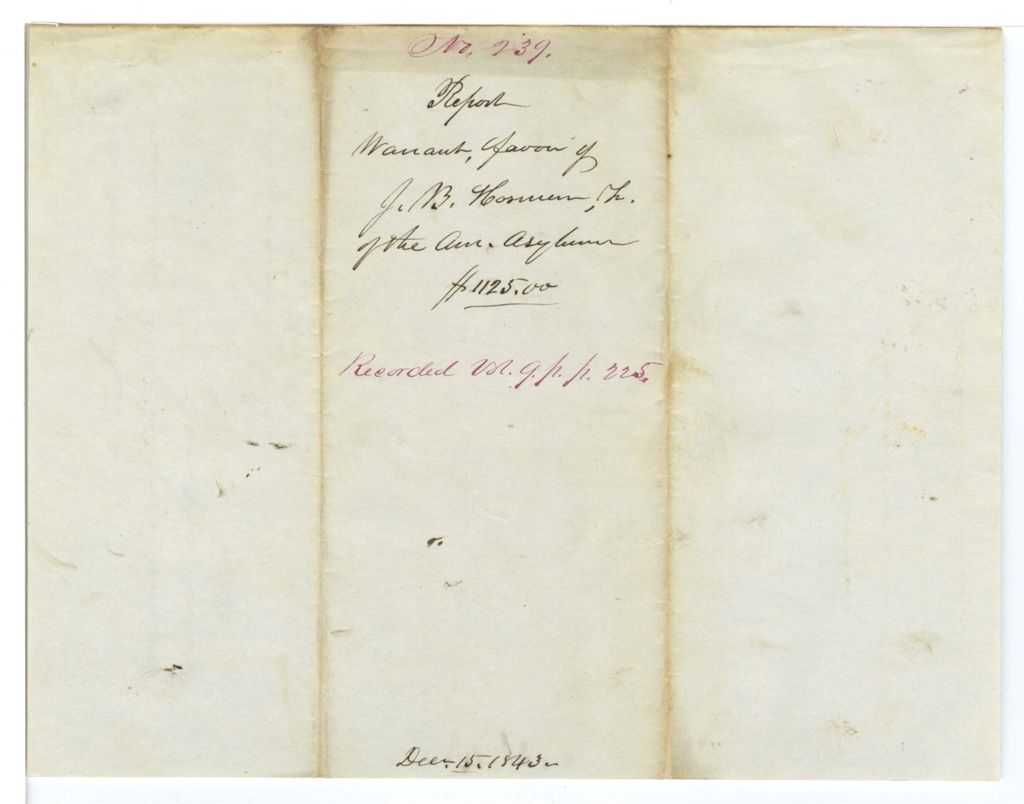 No. 239.
Report
Warrant, favor of
J. B. Hosmer, Tr.
of the Am. Asylum
$1125.00
Recorded Vol. 9. p. p. 225.
Dec. 15. 1843.